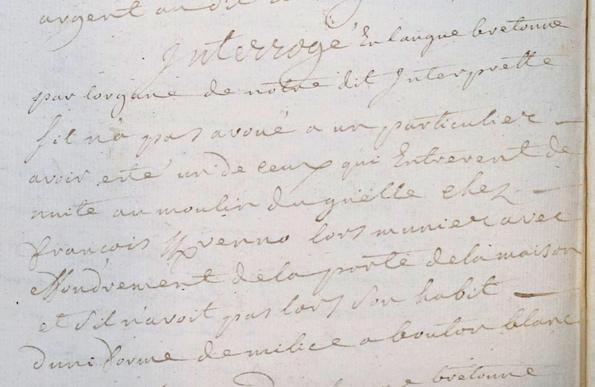 argent au dit
Interrogé En langue bretonne
par lorgane de notre dit Interprette
sil n'a pas avoué a un particulier —
avoir esté un de ceux qui Entrerent de
nuite au moulin du guelle chez —
françois lors munier avec
effondrement de la porte de la maison
et sil navoit pas lors son habit —
duniforme de milice a bouton blanc
bretonne